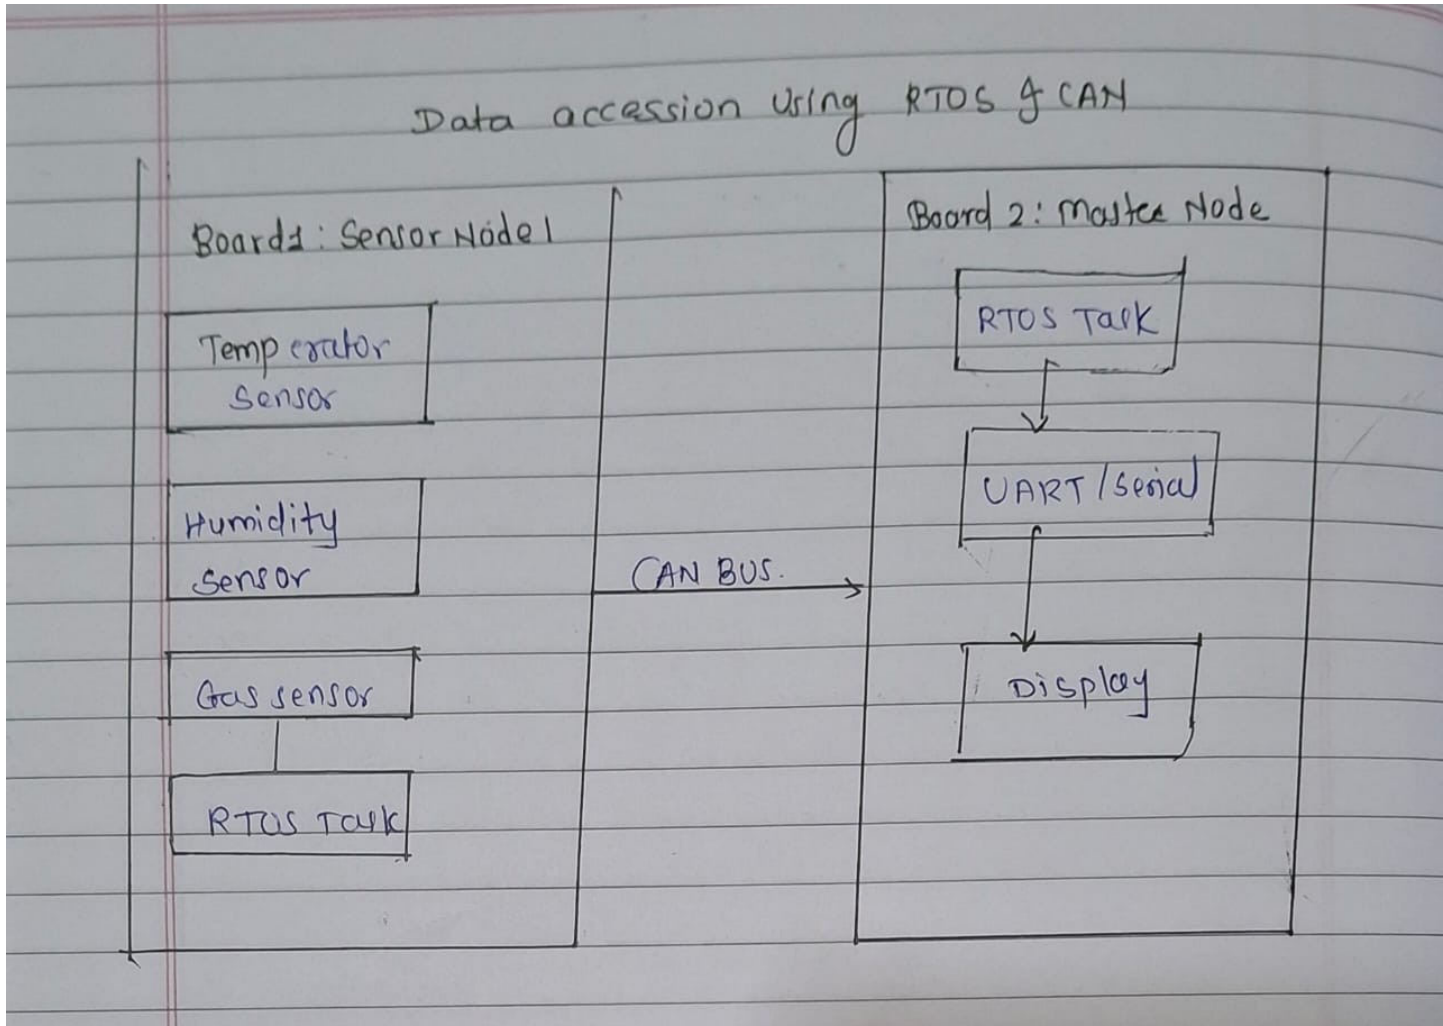 Data accession Using RTOS & CAN
Board1: Sensor Node1
Temperator
Sensor
Humidity
Sensor
Gas sensor
RTOS Task
CAN BUS.
Board 2: Master Node
RTOS Task
UART/Serial
Display